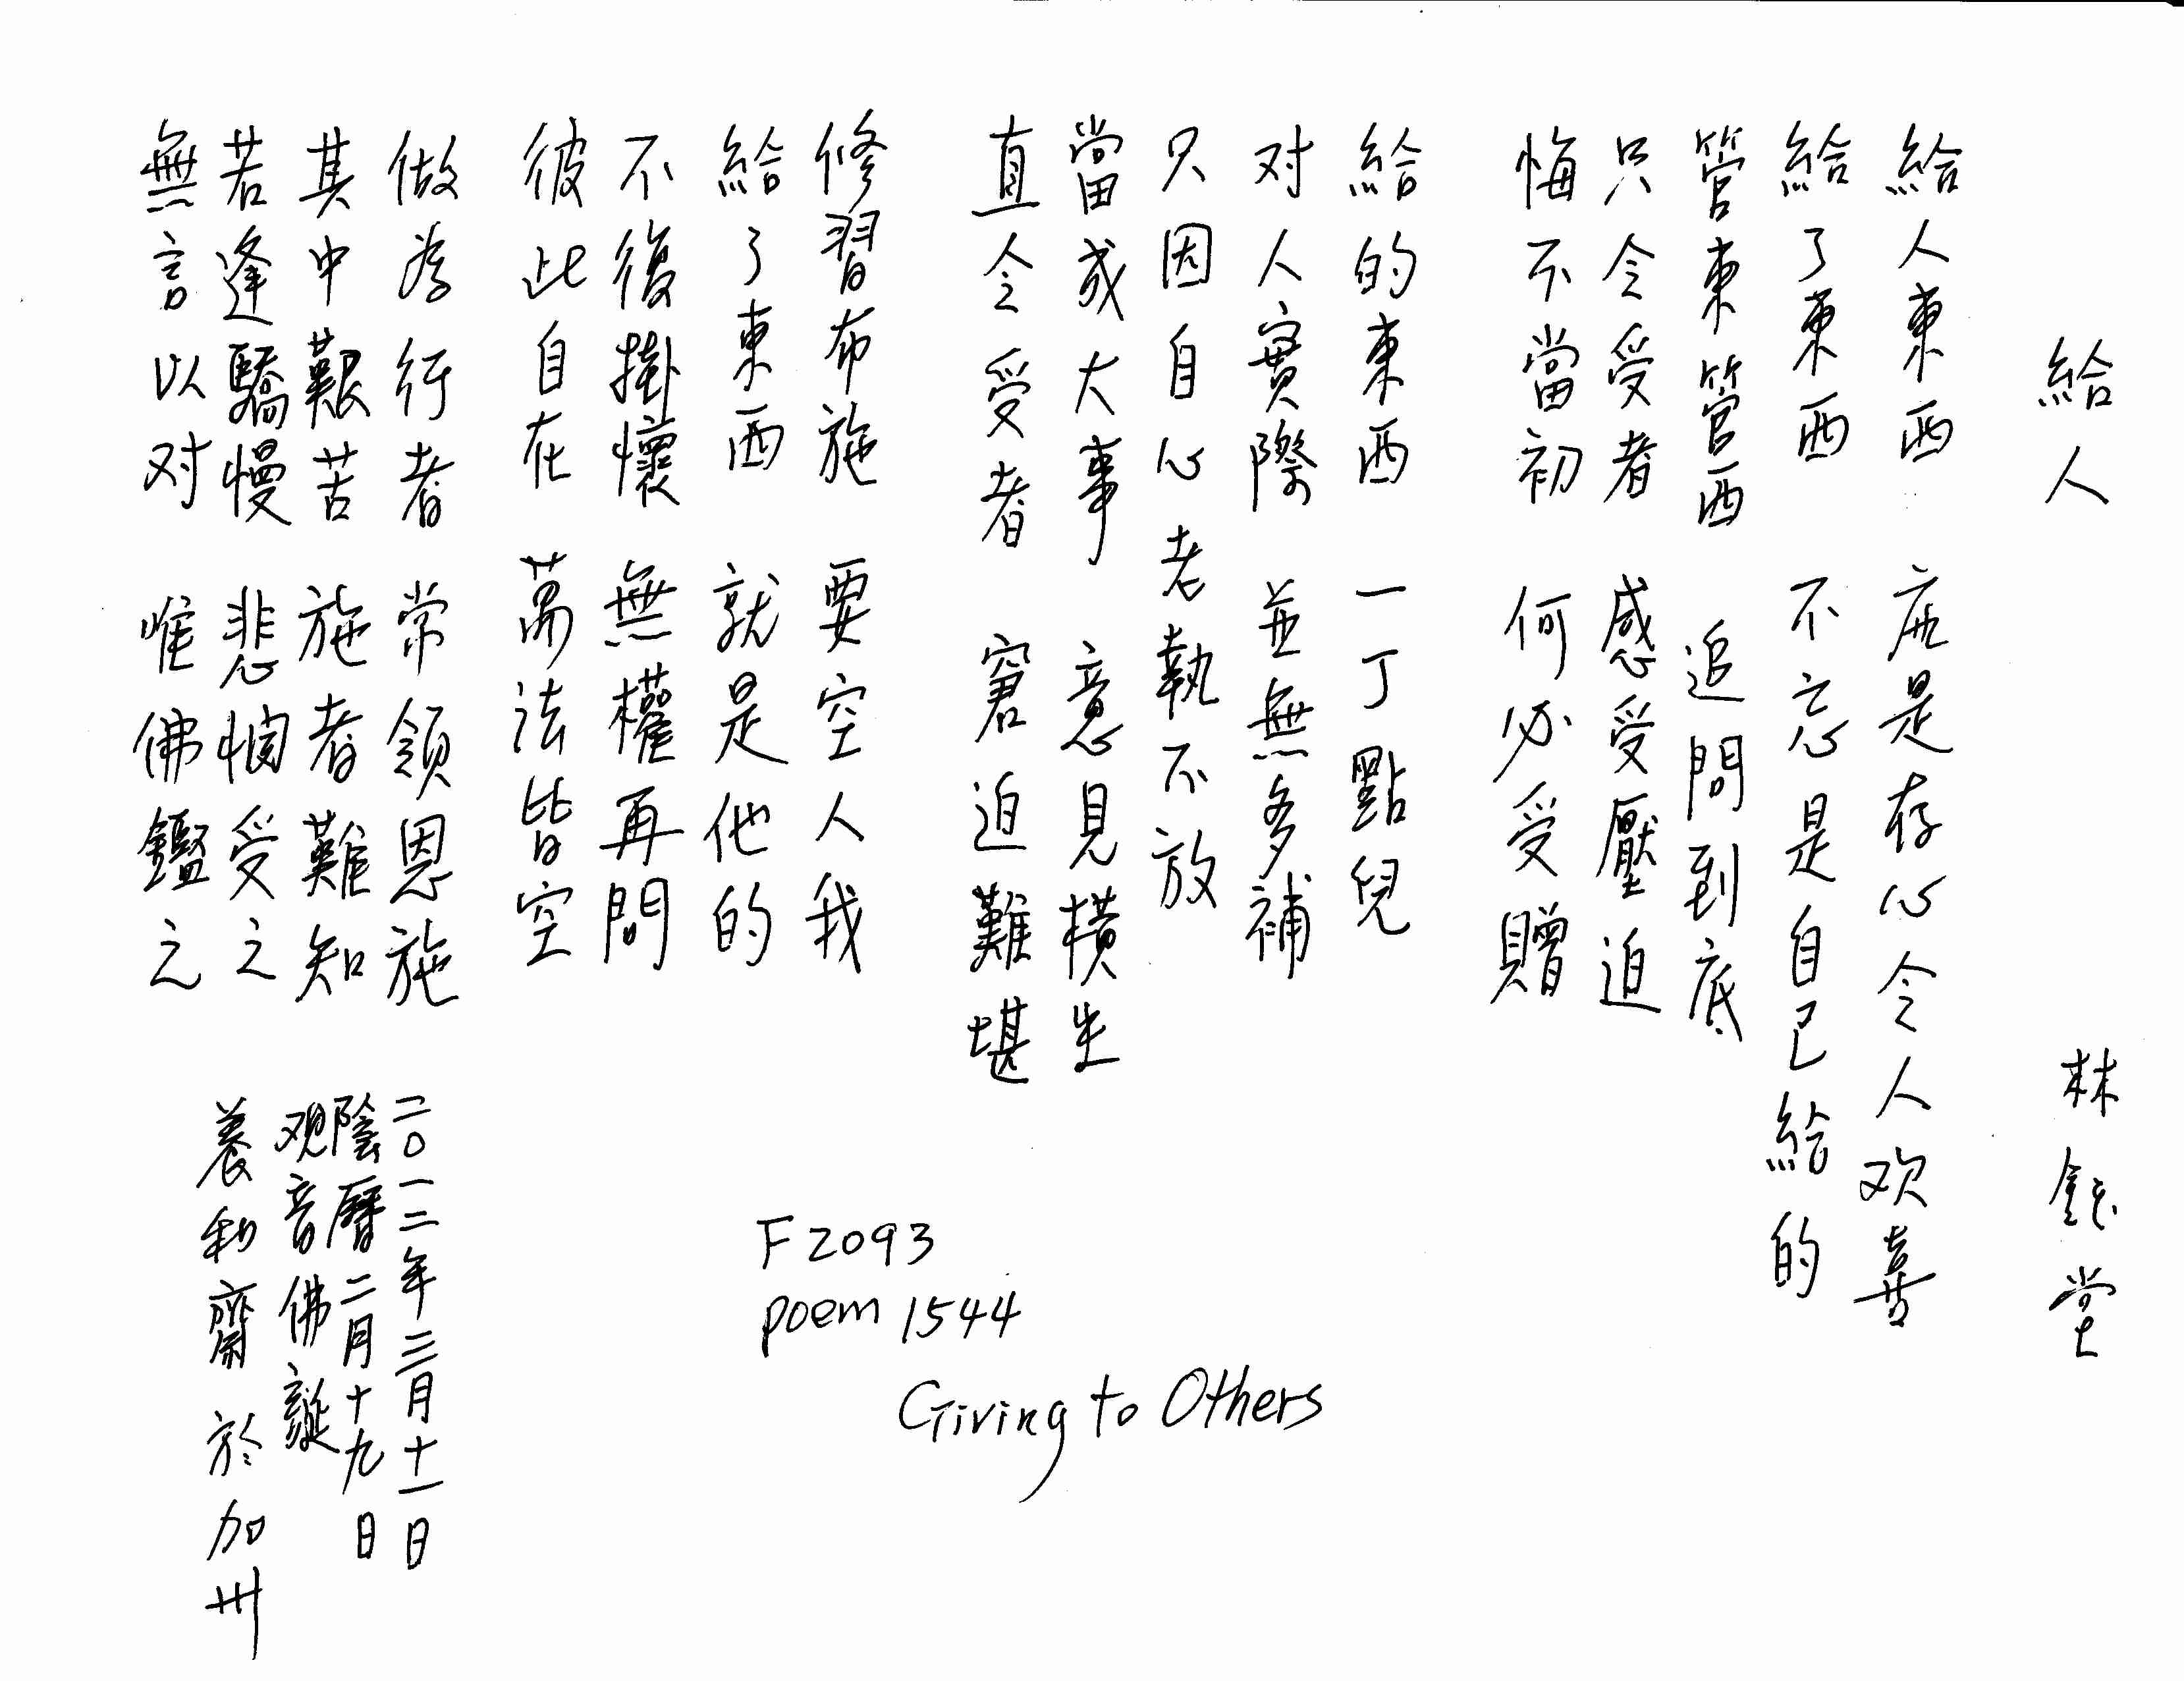 給人 林鈺堂
給人東西 应是存心令人欢喜
給了東西 不忘是自己給的
管東管西 追問到底
只令受者 感受壓迫
悔不當初 何必受贈
給的東西 一丁點兒
对人實際 並無多補
只因自心 老執不放
當成大事 意見橫生
直令受者 窘迫難堪
修習布施 要空人我
給了東西 就是他的
不復掛懷 無權再問
彼此自在 萬法皆空
做為行者 常領恩施
其中艱苦 施者難知
若逢驕慢 悲悯受之
無言以对 唯佛鑑之
二〇一二年三月十一日
陰曆二月十九日
观音佛誕
養和齋 於加州
F2093
poem 1544
Giving to Others